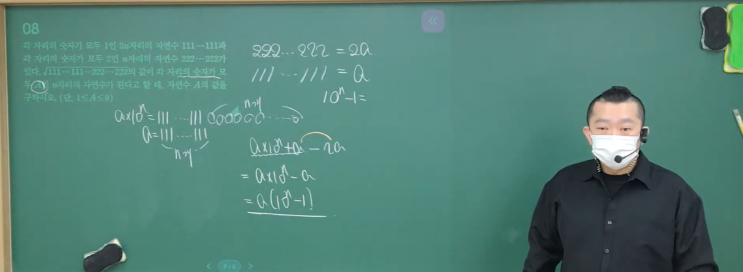 08
각 자리의 숫자가 모두 1인 2n자리의 자연수 111⋯111과
각 자리의 숫자가 모두 2인 n자리의 자연수 222⋯222가
있다. √111⋯111-222⋯222의 값이 각 자리의 숫자가 모
두 A인 n자리의 자연수가 된다고 할 때, 자연수 A의 값을
구하시오. (단, 1≤A≤9)
222⋯222 = 2a
111⋯111 = a
10ⁿ-1=
n개
a×10ⁿ=111⋯111 000000⋯0
a=111⋯111
n개
a×10ⁿ+a-2a
= a×10ⁿ-a
= a(10ⁿ-1)